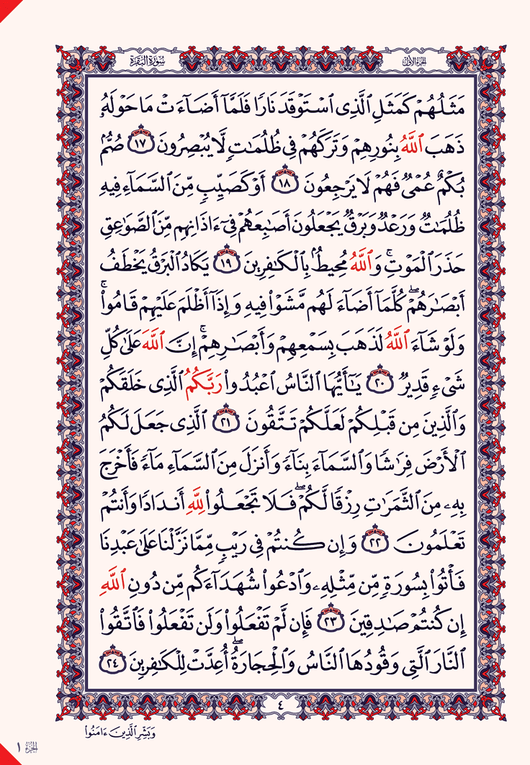 الجزء الأول
سورة البقرة
مَثَلُهُمْ كَمَثَلِ ٱلَّذِى ٱسْتَوْقَدَ نَارًا فَلَمَّآ أَضَآءَتْ مَا حَوْلَهُۥ
ذَهَبَ ٱللَّهُ بِنُورِهِمْ وَتَرَكَهُمْ فِى ظُلُمَٰتٍ لَّا يُبْصِرُونَ ١٧ صُمٌّۢ
بُكْمٌ عُمْىٌ فَهُمْ لَا يَرْجِعُونَ ١٨ أَوْ كَصَيِّبٍ مِّنَ ٱلسَّمَآءِ فِيهِ
ظُلُمَٰتٌ وَرَعْدٌ وَبَرْقٌ يَجْعَلُونَ أَصَٰبِعَهُمْ فِىٓ ءَاذَانِهِم مِّنَ ٱلصَّوَٰعِقِ
حَذَرَ ٱلْمَوْتِ ۚ وَٱللَّهُ مُحِيطٌۢ بِٱلْكَٰفِرِينَ ١٩ يَكَادُ ٱلْبَرْقُ يَخْطَفُ
أَبْصَٰرَهُمْ ۖ كُلَّمَآ أَضَآءَ لَهُم مَّشَوْا۟ فِيهِ وَإِذَآ أَظْلَمَ عَلَيْهِمْ قَامُوا۟ ۚ
وَلَوْ شَآءَ ٱللَّهُ لَذَهَبَ بِسَمْعِهِمْ وَأَبْصَٰرِهِمْ ۚ إِنَّ ٱللَّهَ عَلَىٰ كُلِّ
شَىْءٍ قَدِيرٌ ٢٠ يَٰٓأَيُّهَا ٱلنَّاسُ ٱعْبُدُوا۟ رَبَّكُمُ ٱلَّذِى خَلَقَكُمْ
وَٱلَّذِينَ مِن قَبْلِكُمْ لَعَلَّكُمْ تَتَّقُونَ ٢١ ٱلَّذِى جَعَلَ لَكُمُ
ٱلْأَرْضَ فِرَٰشًا وَٱلسَّمَآءَ بِنَآءً وَأَنزَلَ مِنَ ٱلسَّمَآءِ مَآءً فَأَخْرَجَ
بِهِۦ مِنَ ٱلثَّمَرَٰتِ رِزْقًا لَّكُمْ ۖ فَلَا تَجْعَلُوا۟ لِلَّهِ أَندَادًا وَأَنتُمْ
تَعْلَمُونَ ٢٢ وَإِن كُنتُمْ فِى رَيْبٍ مِّمَّا نَزَّلْنَا عَلَىٰ عَبْدِنَا
فَأْتُوا۟ بِسُورَةٍ مِّن مِّثْلِهِۦ وَٱدْعُوا۟ شُهَدَآءَكُم مِّن دُونِ ٱللَّهِ
إِن كُنتُمْ صَٰدِقِينَ ٢٣ فَإِن لَّمْ تَفْعَلُوا۟ وَلَن تَفْعَلُوا۟ فَٱتَّقُوا۟
ٱلنَّارَ ٱلَّتِى وَقُودُهَا ٱلنَّاسُ وَٱلْحِجَارَةُ ۖ أُعِدَّتْ لِلْكَٰفِرِينَ ٢٤
٤
وَبَشِّرِ ٱلَّذِينَ ءَامَنُوا۟
الجزء ١